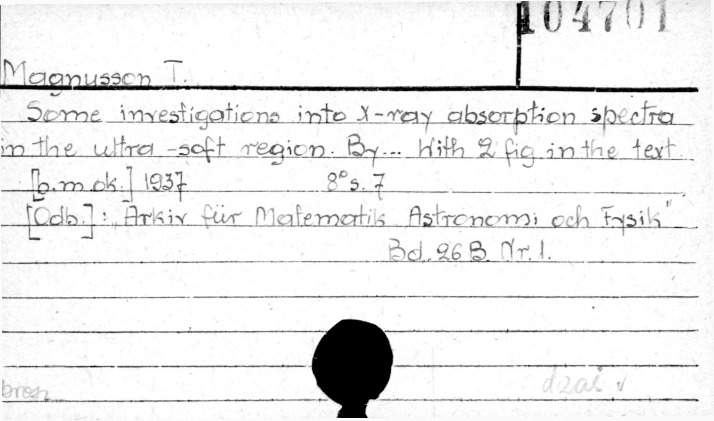 104701
Magnusson T.
Some investigations into X-ray absorption spectra
in the ultra-soft region. By... With 2 fig in the text
[b.m.ok.] 1937 8° s. 7
[Odb.]: „Arkiv für Matematik Astronomi och Fysik"
Bd. 26 B. Nr. 1.
brosz.